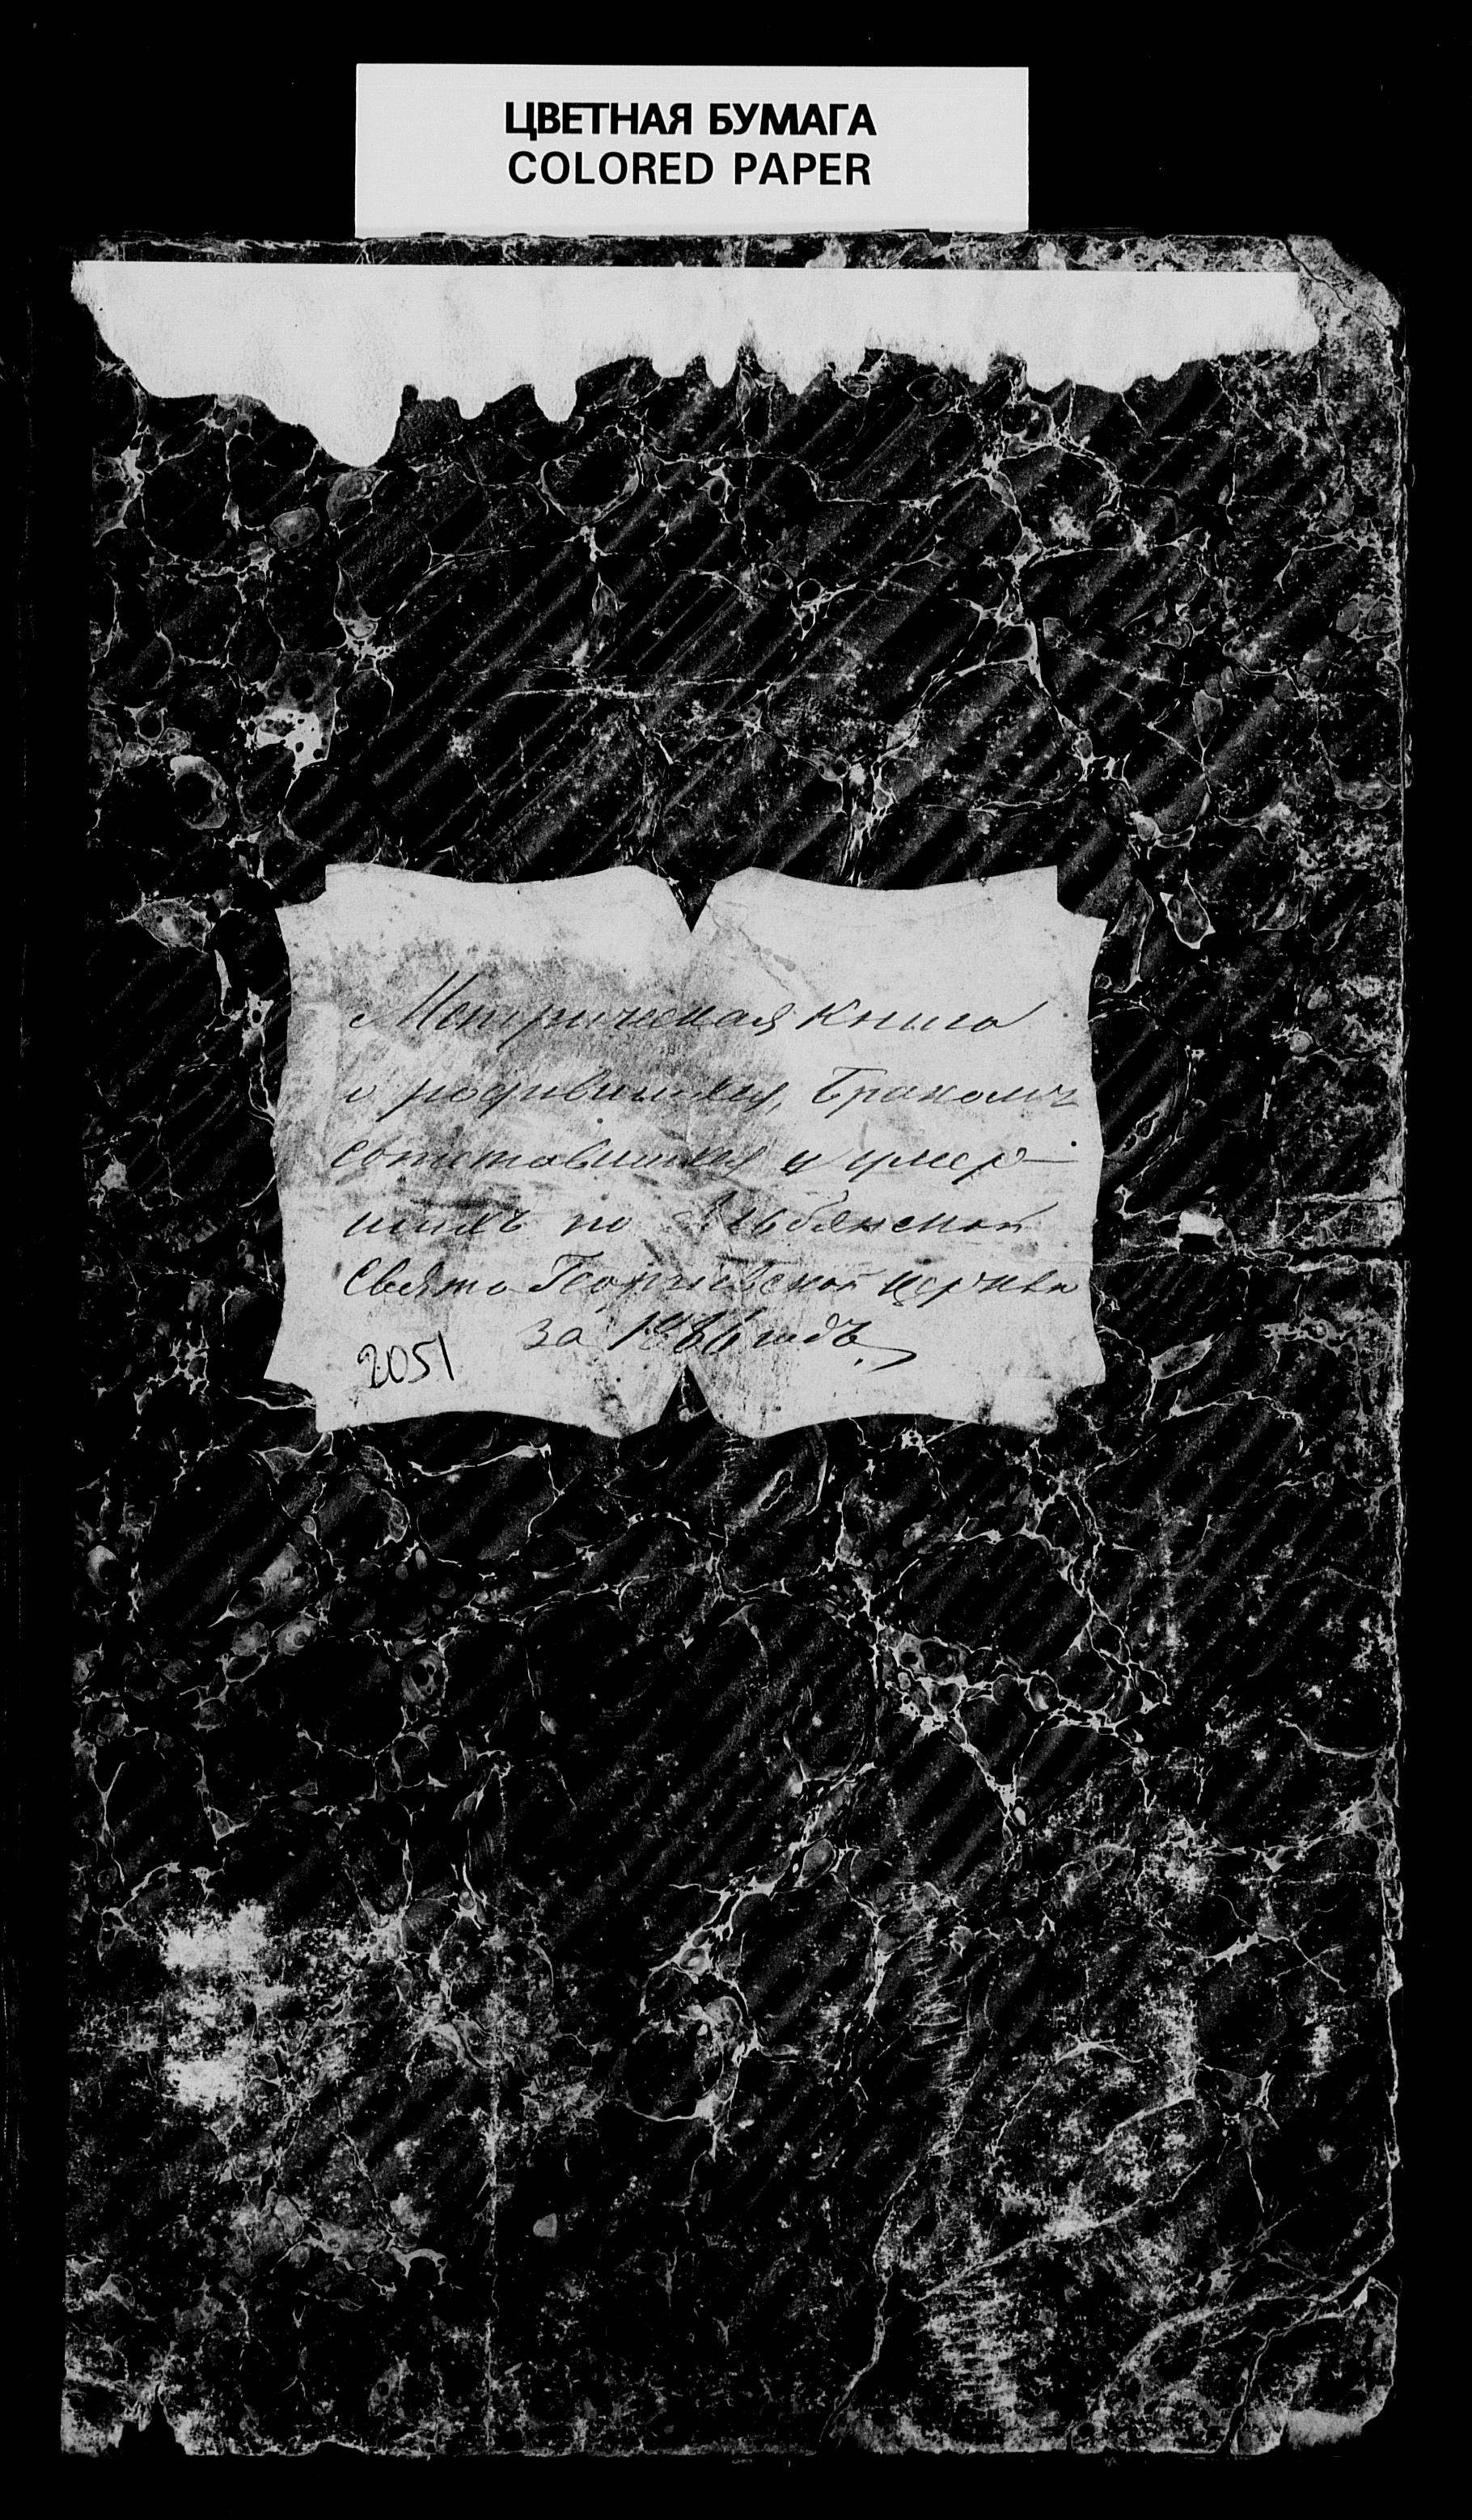 ЦВЕТНАЯ БУМАГА
COLORED PAPER
Метрическая книга
о родившихся, бракомъ
сочетавшихся и умер-
шихъ по
Свято Георгіевской церкви
за 1886 годъ.
2051